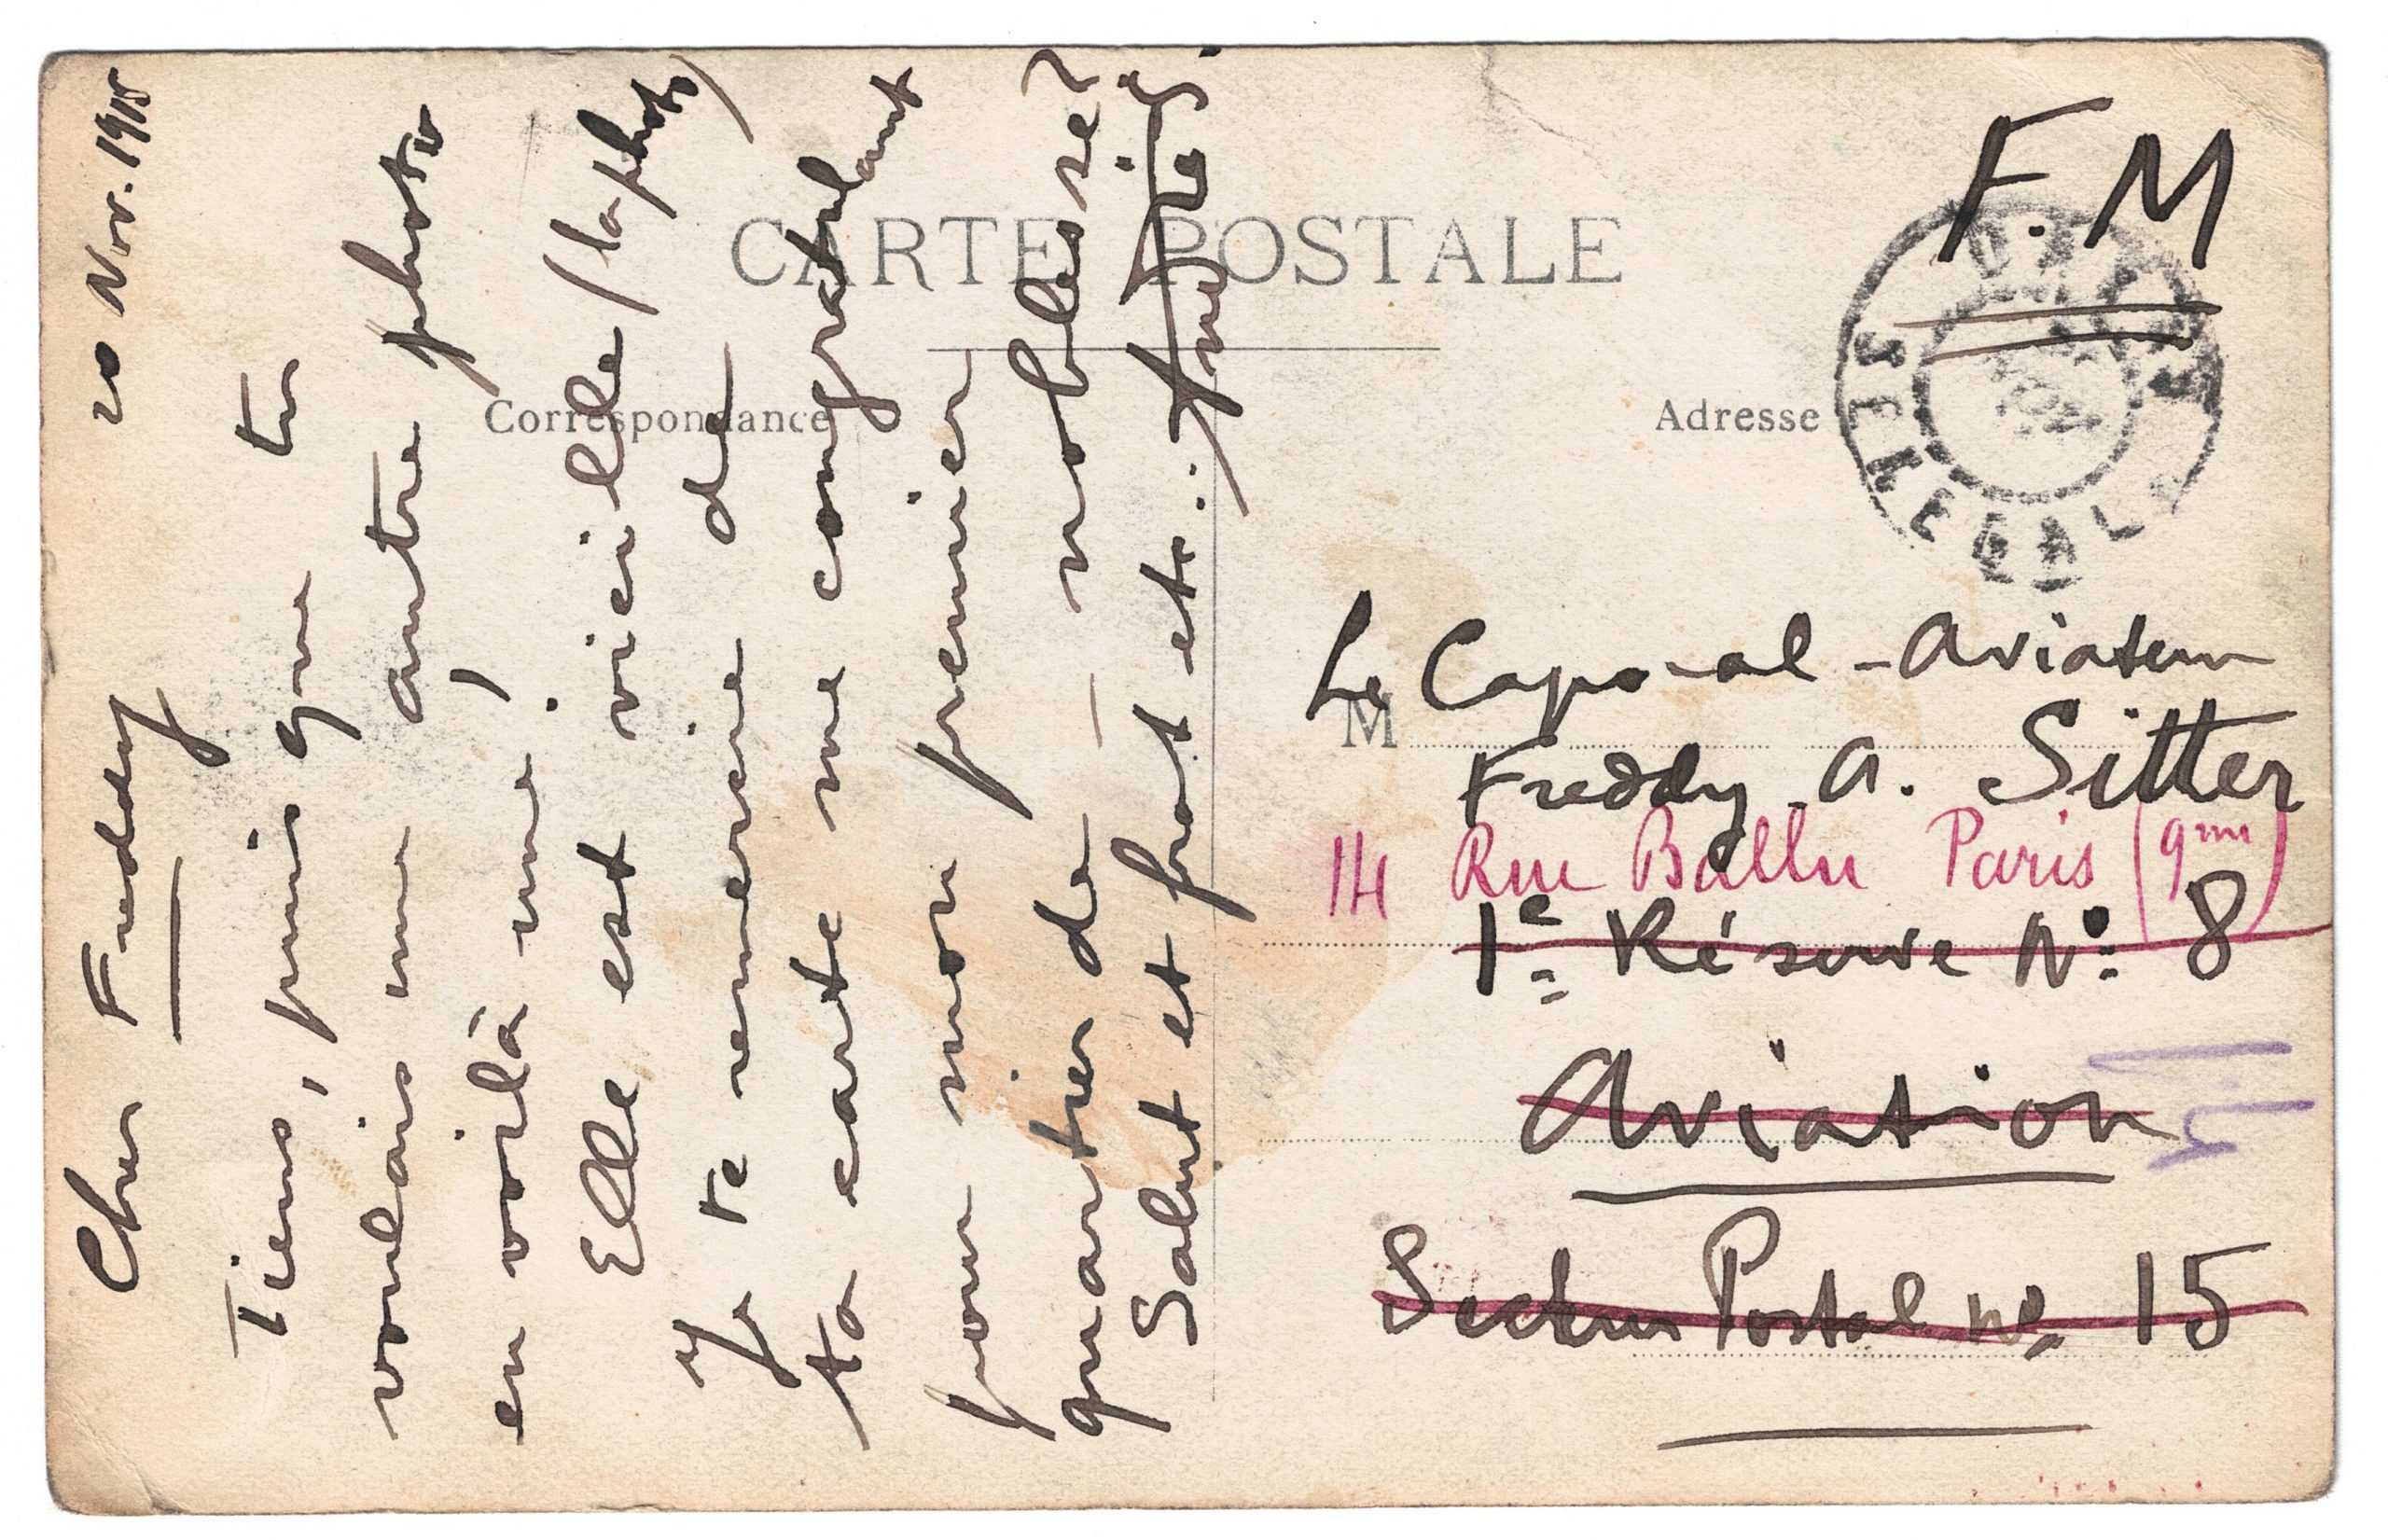 20 Nov. 1915
Cher Freddy
Tiens, puis que tu
voulais une autre photo
en voilà une,
Elle est vieille (la photo)
Je te remercie de
ta carte me congratulant
pour mon premier
quartier de - noblesse?
Salut et frat etc..
CARTE POSTALE
Correspondance
Adresse
F. M
Le Caporal - Aviateur
M
Freddy A. Sitter
14 Rue Ballu Paris (9me)
1e Réserve No 8
Aviation
Secteur Postal No 15